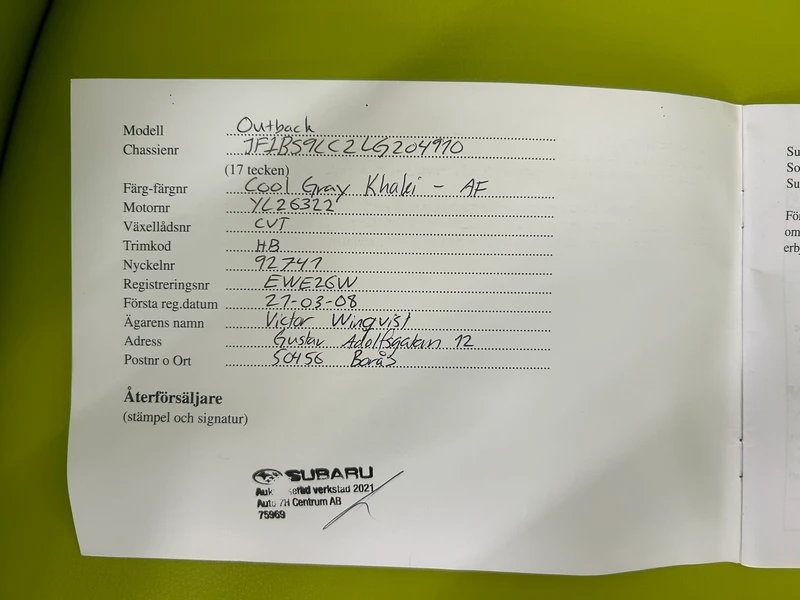 Modell Outback
Chassienr JF1BS9LC2LG204970
(17 tecken)
Färg-färgnr Cool Gray Khaki - AF
Motornr YL26322
Växellådsnr CVT
Trimkod HB
Nyckelnr 92741
Registreringsnr EWE26W
Första reg.datum 21-03-08
Ägarens namn Victor Winqvist
Adress Gustav Adolfsgatan 12
Postnr o Ort 50456 Borås
Återförsäljare
(stämpel och signatur)
SUBARU
verkstad 2021
Auto 7H Centrum AB
75969
Su
So
Su
För
om
erb